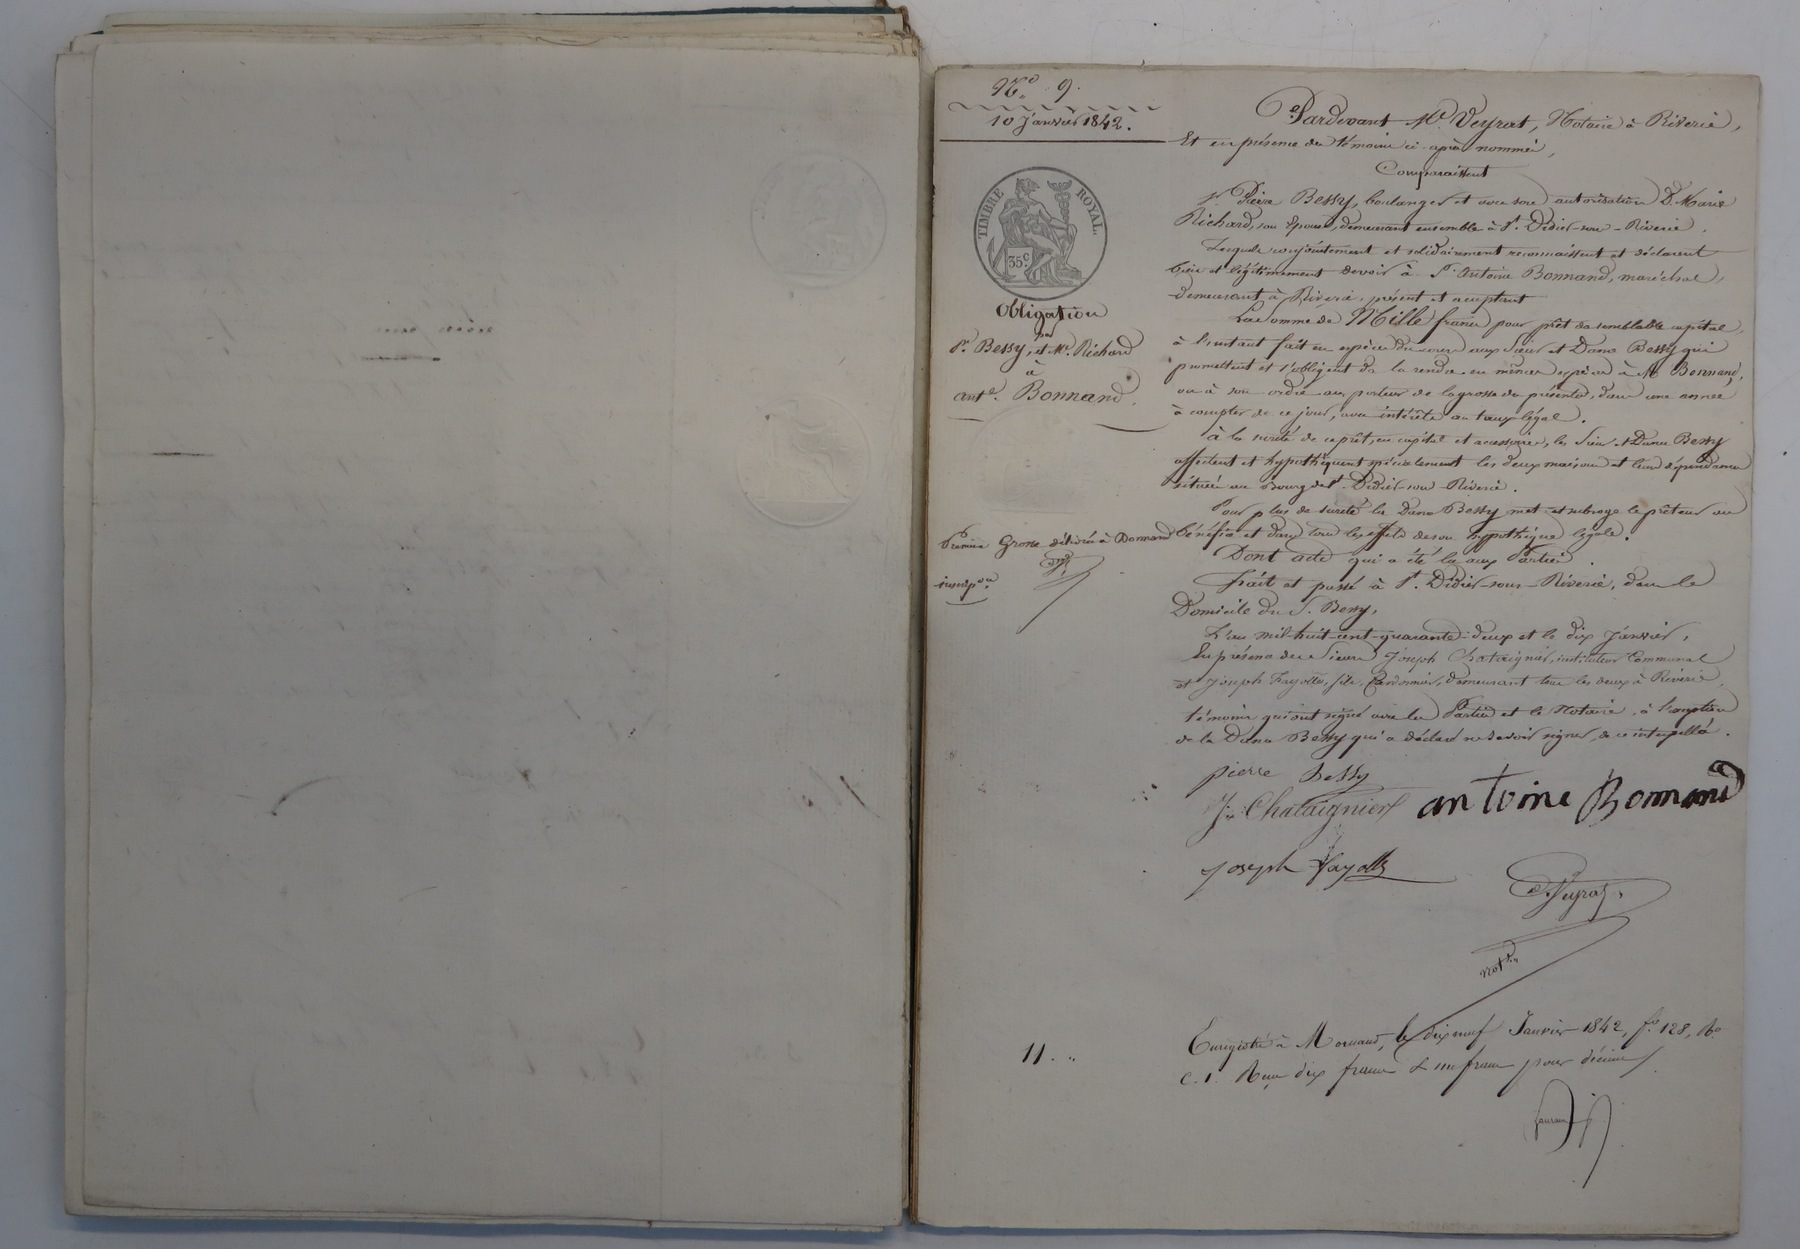 N.° 9.
10 Janvier 1842.
TIMBRE ROYAL.
35c
Obligation
par
Sr. Bessy, et Me. Richard
à
Ante. Bonnand.
Première Grosse délivrée à Bonnand
inscripon.
11. "
Pardevant Me. Veyrat, Notaire à Riverie,
Et en présence des témoins ci-après nommés,
Comparaissent
Sr. Pierre Bessy, boulanger et avec son autorisation De. Marie
Richard, son Epouse, demeurant ensemble à St. Didier-sous-Riverie.
Lesquels conjointement et solidairement reconnaissent et déclarent
bien et légitimement devoir à Sr. Antoine Bonnand, maréchal,
demeurant à Riverie, présent et acceptant
La somme de Mille francs pour prêt de semblable capital,
à l'instant fait en espèces du cours aux Sieur et Dame Bessy qui
promettent et s'obligent de la rendre en mêmes espèces à Mr Bonnand,
ou à son ordre au porteur de la grosse des présentes, dans une année
à compter de ce jour, avec intérêts au taux légal.
à la sureté de ce prêt, en capital et accessoires, les Sieur et Dame Bessy
affectent et hypothèquent spécialement les deux maisons et leurs dépendances
situées au Bourg de St. Didier-sous-Riverie.
Pour plus de sureté la Dame Bessy met et subroge le prêteur au
bénéfice et dans tous les effets de son hypothèque légale.
Dont acte qui a été lu aux Parties.
Fait et passé à St. Didier-sous-Riverie, dans le
Domicile du S. Bessy,
L'an mil-huit-cent-quarante-deux et le dix Janvier,
En présence des Sieurs Joseph Chataignier, instituteur Communal
et Joseph Fayolle, fils, Cordonnier, demeurant tous les deux à Riverie,
témoins qui ont signé avec les Parties et le Notaire, à l'exception
de la Dame Bessy qui a déclaré ne savoir signer, de ce interpellée.
pierre bessy
Jh. Chataignier antoine Bonnand
joseph fayolle
Veyrat
Notre.
Enregistré à Mornant, le dix neuf Janvier 1842, fo. 128, Ro
C. 1. Reçu dix francs & un franc pour décime